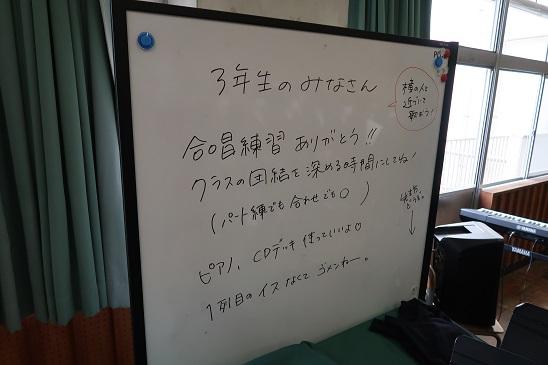 3年生のみなさん
横の人と
近づいて
歌おう!
合唱練習 ありがとう!!
クラスの団結を深める時間にしてね!
(パート練でも合わせでも○)
ピアノ、CDデッキ 使っていいよ○
1列目のイス なくて ゴメンねー。
YAMAHA